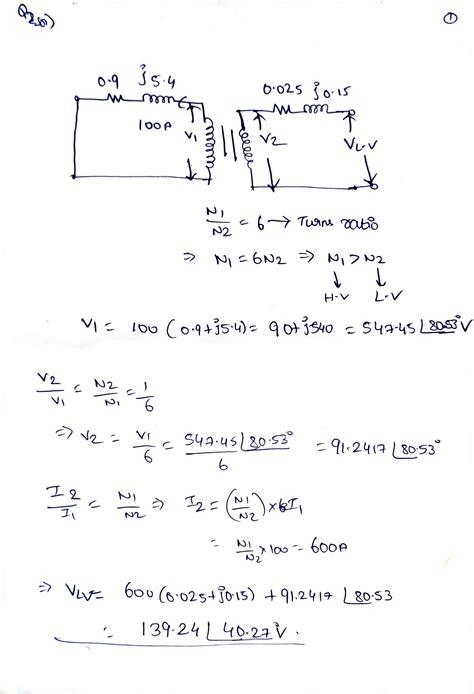 Q2(b)
①
0.9 j5.4
0.025 j0.15
100A V1 V2 VL.V
N1/N2 = 6 → Turns ratio
⇒ N1 = 6N2 ⇒ N1 > N2
↓ ↓
H.V L.V
V1 = 100 (0.9+j5.4) = 90+j540 = 547.45 ∠80.53° V
V2/V1 = N2/N1 = 1/6
⇒ V2 = V1/6 = 547.45∠80.53°/6 = 91.2417 ∠80.53°
I2/I1 = N1/N2 ⇒ I2 = (N1/N2) × I1
= N1/N2 × 100 = 600A
⇒ VLV = 600 (0.025+j0.15) + 91.2417 ∠80.53
= 139.24 ∠40.27° V.